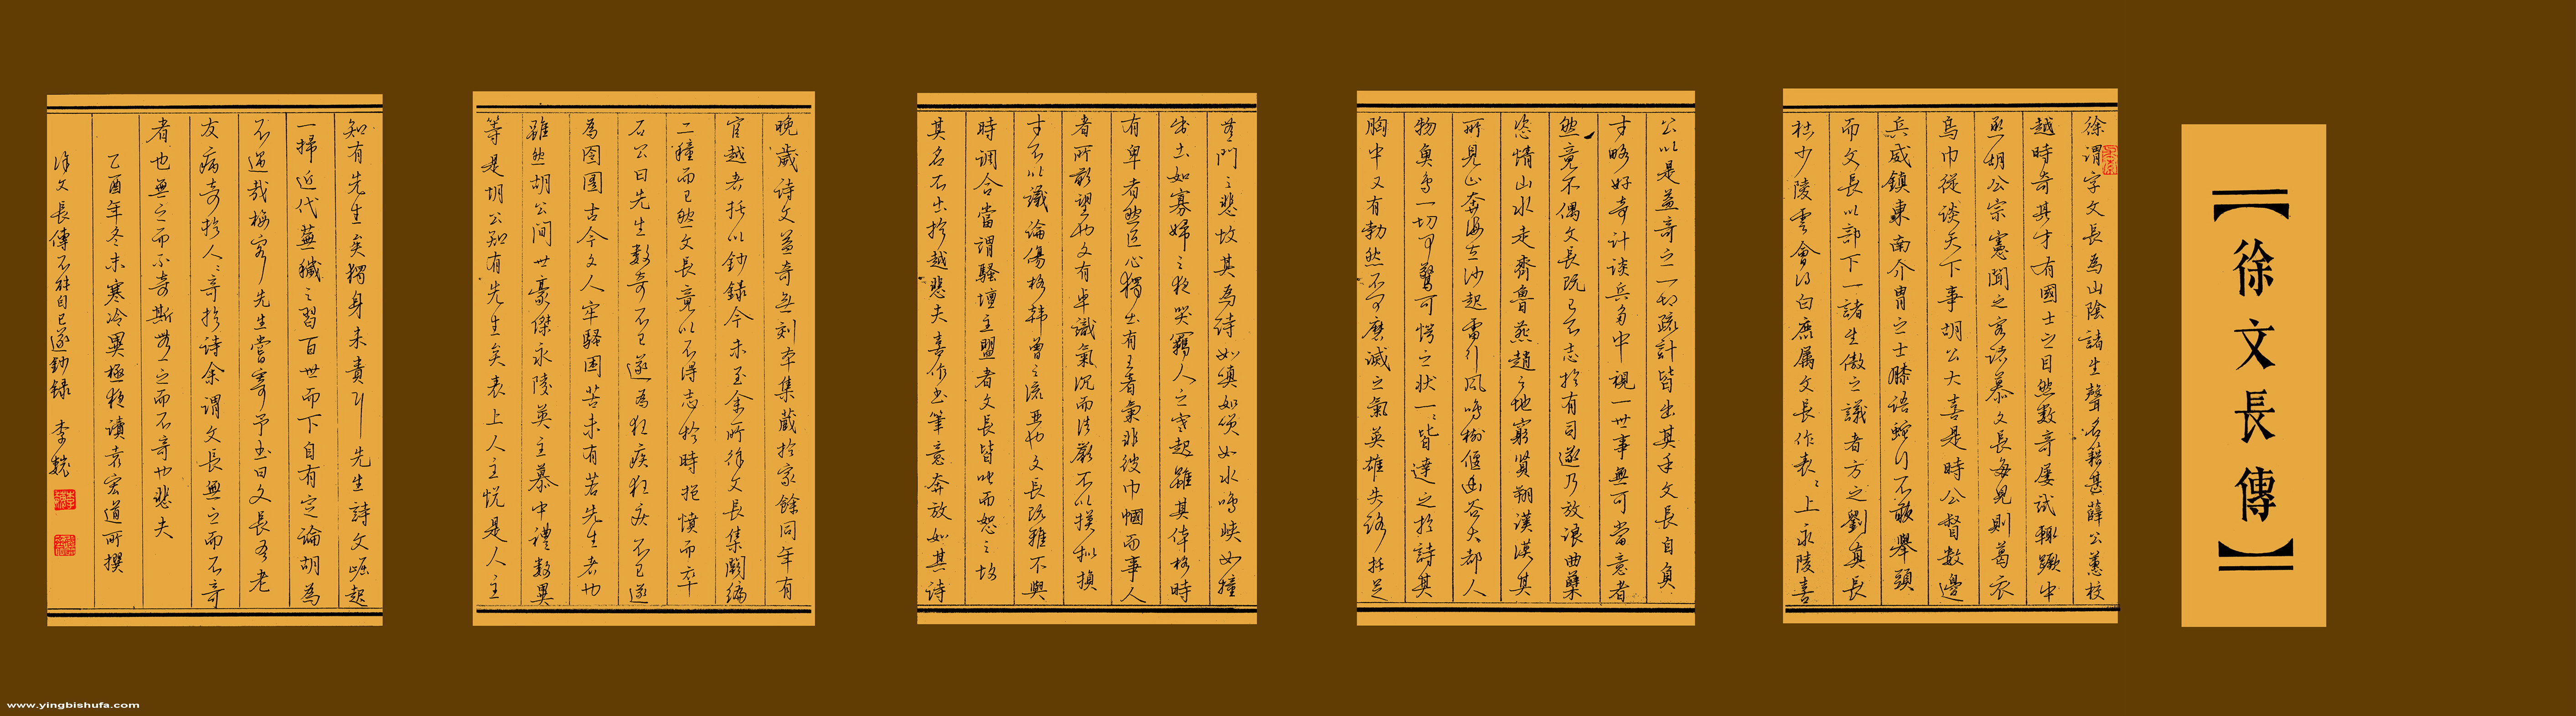 【徐文長傳】
徐渭字文長為山陰諸生聲名籍甚薛公蕙校
越時奇其才有國士之目然數奇屢試輒蹶中
丞胡公宗憲聞之客諸幕文長每見則葛衣
烏巾從談天下事胡公大喜是時公督數邊
兵威鎮東南介冑之士膝語蛇行不敢舉頭
而文長以部下一諸生傲之議者方之劉真長
杜少陵雲會得白鹿屬文長作表表上永陵喜
公以是益奇之一切疏計皆出其手文長自負
才略好奇計談兵多中視一世事無可當意者
然竟不偶文長既已不志於有司遂乃放浪曲蘗
恣情山水走齊魯燕趙之地窮覽朔漠其
所見山奔海立沙起雷行風鳴樹偃幽谷大都人
物魚鳥一切可驚可愕之狀一一皆達之於詩其
胸中又有勃然不可磨滅之氣英雄失路托足
無門之悲故其為詩如嗔如笑如水鳴峽如種
出土如寡婦之夜哭羈人之寒起雖其體格時
有卑者然匠心獨出有王者氣非彼巾幗而事人
者所敢望也文有卓識氣沉而法嚴不以摸擬損
才不以議論傷格韓曾之流亞也文長既雅不與
時調合當謂騷壇主盟者文長皆叱而怒之故
其名不出於越悲夫喜作書筆意奔放如其詩
晚歲詩文益奇無刻本集藏於家餘同年有
官越者托以鈔錄今未至余所徐文長集闕編
二種而已然文長竟以不得志於時抱憤而卒
石公曰先生數奇不已遂為狂疾狂疾不已遂
為囹圄古今文人牢騷困苦未有若先生者也
雖然胡公間世豪傑永陵英主幕中禮數異
等是胡公知有先生矣表上人主悅是人主
知有先生矣獨身未貴耳先生詩文崛起
一掃近代蕪穢之習百世而下自有定論胡為
不遇哉梅客先生嘗寄予書曰文長吾老
友病奇於人人奇於詩余謂文長無之而不奇
者也無之而不奇斯無之而不奇也悲夫
乙酉年冬末寒冷異極夜讀袁宏道所撰
徐文長傳不能自已遂鈔録 李
www.yingbishufa.com